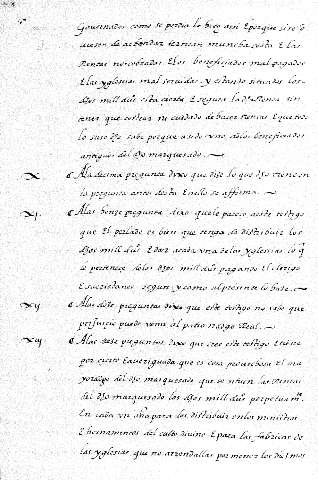 Governador como se perdia lo bien assi E porque si se o
viesen de arrendar ternian mucha costa E las
Rentas no cobradas E los beneficiados mal pagados
E las yglesias mal servidas y estando situados los
dhos mill dus esta cierta E segura la dha Renta sin
tener que costear ni cuidado de hazer Rentas E que todo
lo suso dho sabe porque a sido uno de los beneficiados
antiguos del dho marquesado
X A la decima pregunta dixo que dize lo que dho tiene en
la pregunta antes desta E en ello se afirma
xj A las honze preguntas dixo que le parece a este testigo
que El perlado es bien que tenga de distribuir los
dhos mill dus E dar a cada una de las yglesias lo q
le pertenece de los dhos mill dus pagando El clerigo
E sacristanes segun y como al presente lo haze
xij A las doze preguntas dixo que este testigo no sabe que
perjuicio pueda venir al patronadgo Real
xiij A las treze preguntas dixo que cree este testigo E tiene
por cierto E averiguado que es cosa provechosa El ma
yordomo del dho marquesado que se situen las Rentas
del dho marquesado los dhos mill dus perpetuamte
En cada un año para los distribuir en los ministros
E hornamentos del culto divino E para las fabricas de
las yglesias que no arrendallas por menos los diezmos